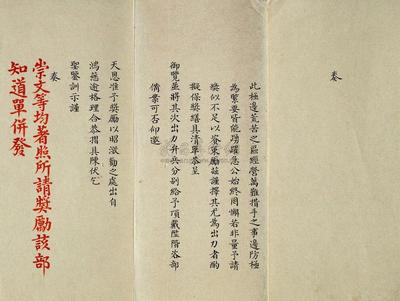 奏
此極邊荒苦之區經營萬難措手之事邊防極
為緊要皆能踴躍急公始終罔懈若非量予請
獎似不足以資策勵茲謹擇其尤為出力者酌
擬保獎繕具清單恭呈
御覽並將其次出力弁兵分別給予頂戴陞階咨部
備案可否仰邀
天恩准予獎勵以昭激勸之處出自
鴻慈逾格理合恭摺具陳伏乞
聖鑒訓示謹
奏
崇文等均著照所請獎勵該部
知道單併發